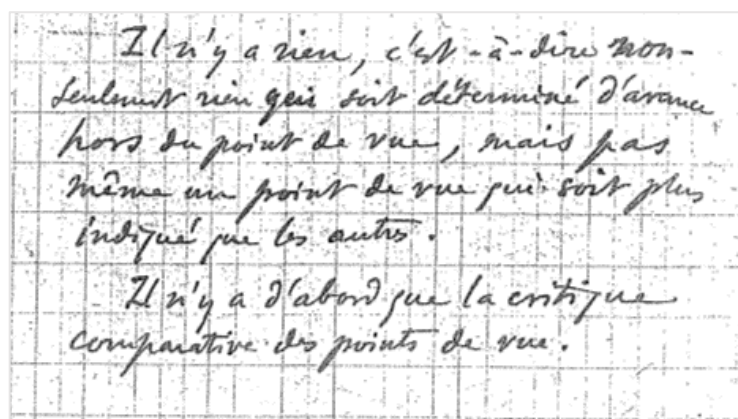 Il n'y a rien, c'est-à-dire non-
seulement rien qui soit déterminé d'avance
hors du point de vue, mais pas
même un point de vue qui soit plus
indiqué que les autres.
Il n'y a d'abord que la critique
comparative des points de vue.